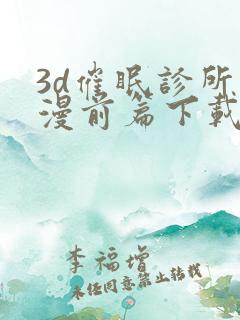 3d催眠診所
漫前篇下載
李福增
未经同意禁止转载